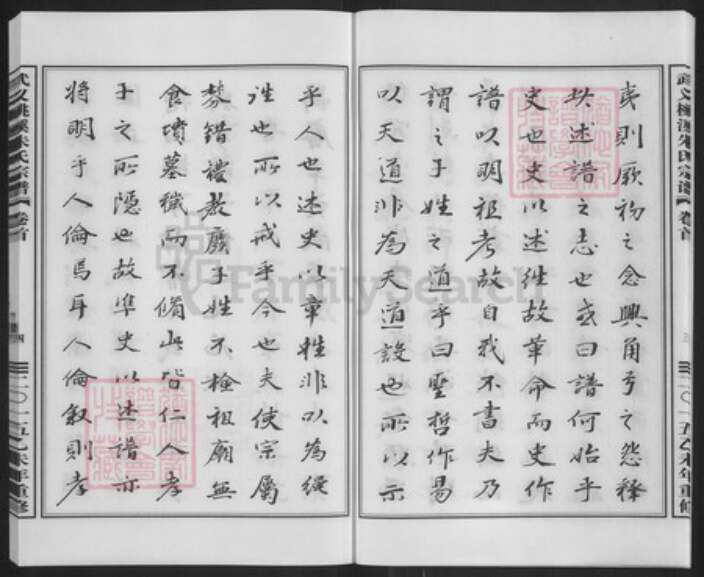 夷則厥初之念興角弓之怨釋
此述譜之志也或曰譜何始乎
史也史以述往故革命而史作
譜以明祖考故自我不書夫乃
謂之子姓之道乎曰聖哲作易
以天道非為天道設也所以示
乎人也述史以章往非以為綴
往也所以戒乎今也夫使宗屬
棼錯禮教廢子姓不檢祖廟無
食墳墓穢而不脩此皆仁人孝
子之所隱也故準史以述譜亦
將明乎人倫焉耳人倫敘則孝
武义桃溪朱氏宗谱【卷首
二〇一五乙未年重修
武义桃溪朱氏宗谱【卷首
四
二〇一五乙未年重修
FamilySearch